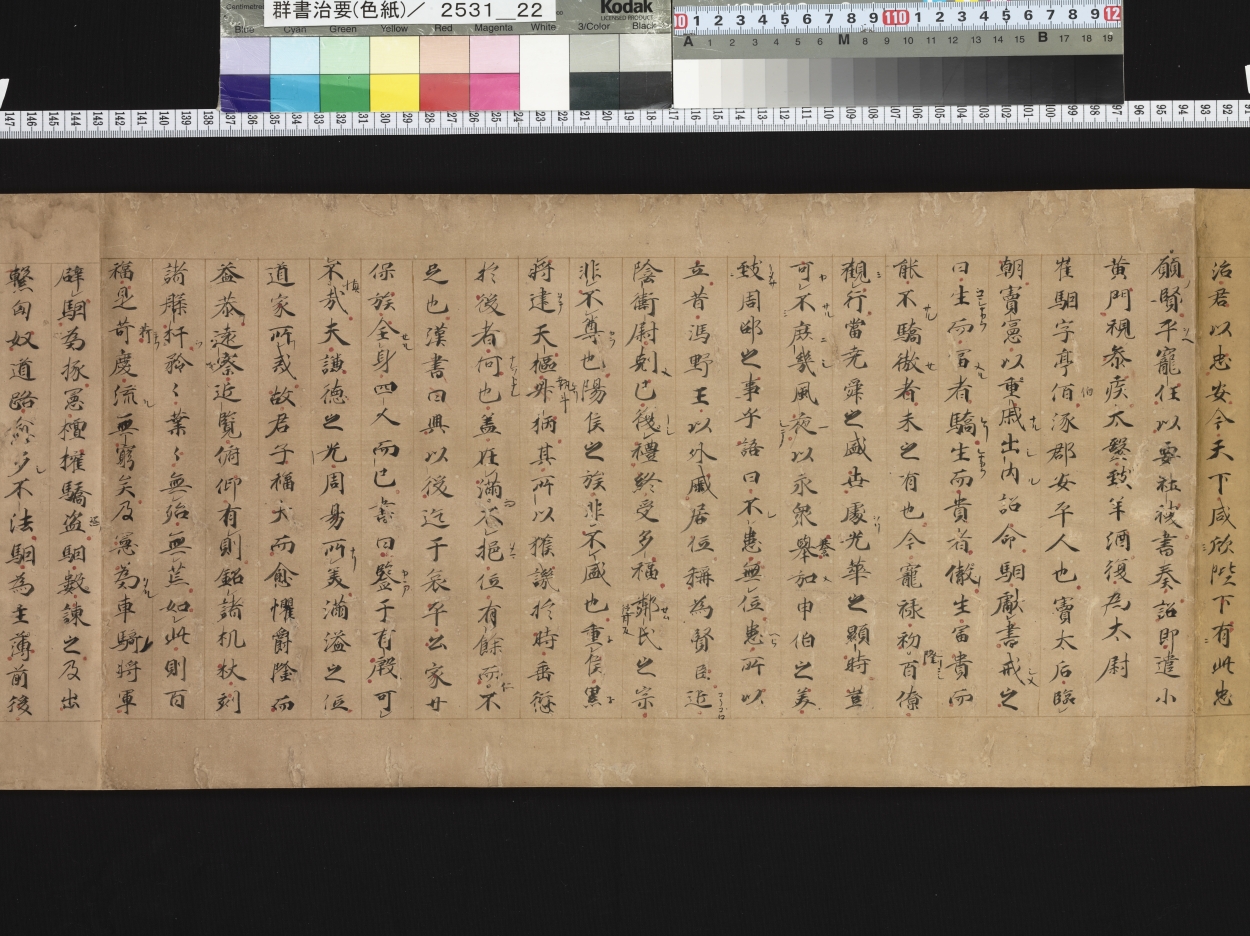 群書治要(色紙)／ 2531__22
Kodak
LICENSED PRODUCT
Centimetres
Blue Cyan Green Yellow Red Magenta White 3/Color Black
治君以忠安今天下咸欣陛下有此忠
願賢平寵任以要社稷書奏詔即遣小
黄門視忝疾太毉致羊酒復為太尉
崔駰字亭伯涿郡安平人也竇太后臨
朝竇憲以重戚出内詔命駰獻書戒之
曰生而冨者驕生而貴者慠生冨貴而
能不驕慠者未之有也今寵禄初百僚
觀行當尭舜之盛世處光華之顯時豈
可不庶幾夙夜以永衆舉加申伯之美
致周邵之事乎語曰不患無位患所以
立昔馮野王以外戚居位稱為賢臣近
陰衛尉剋己復禮終受多福鄭氏之宗
非不尊也陽侯之族非不盛也重侯累
将建天樞外柄其所以獲譏於時垂愆
於後者何也蓋在滿不挹位有餘而不
足也漢書曰興以後迄于哀平公家廿
保族全身四人而已書曰鑒于有殷可
不哉夫謙德之光周易所美滿溢之位
道家所戒故君子福大而愈懼爵隆而
益恭遠察近覧俯仰有則銘諸机杖刻
諸槃杅矜々業々無殆無荒如此則百
福是荷慶流無窮矣及憲為車騎将軍
辟駰為掾憲擅權驕盗駰數諫之及出
撃匈奴道路愈多不法駰為主薄前後